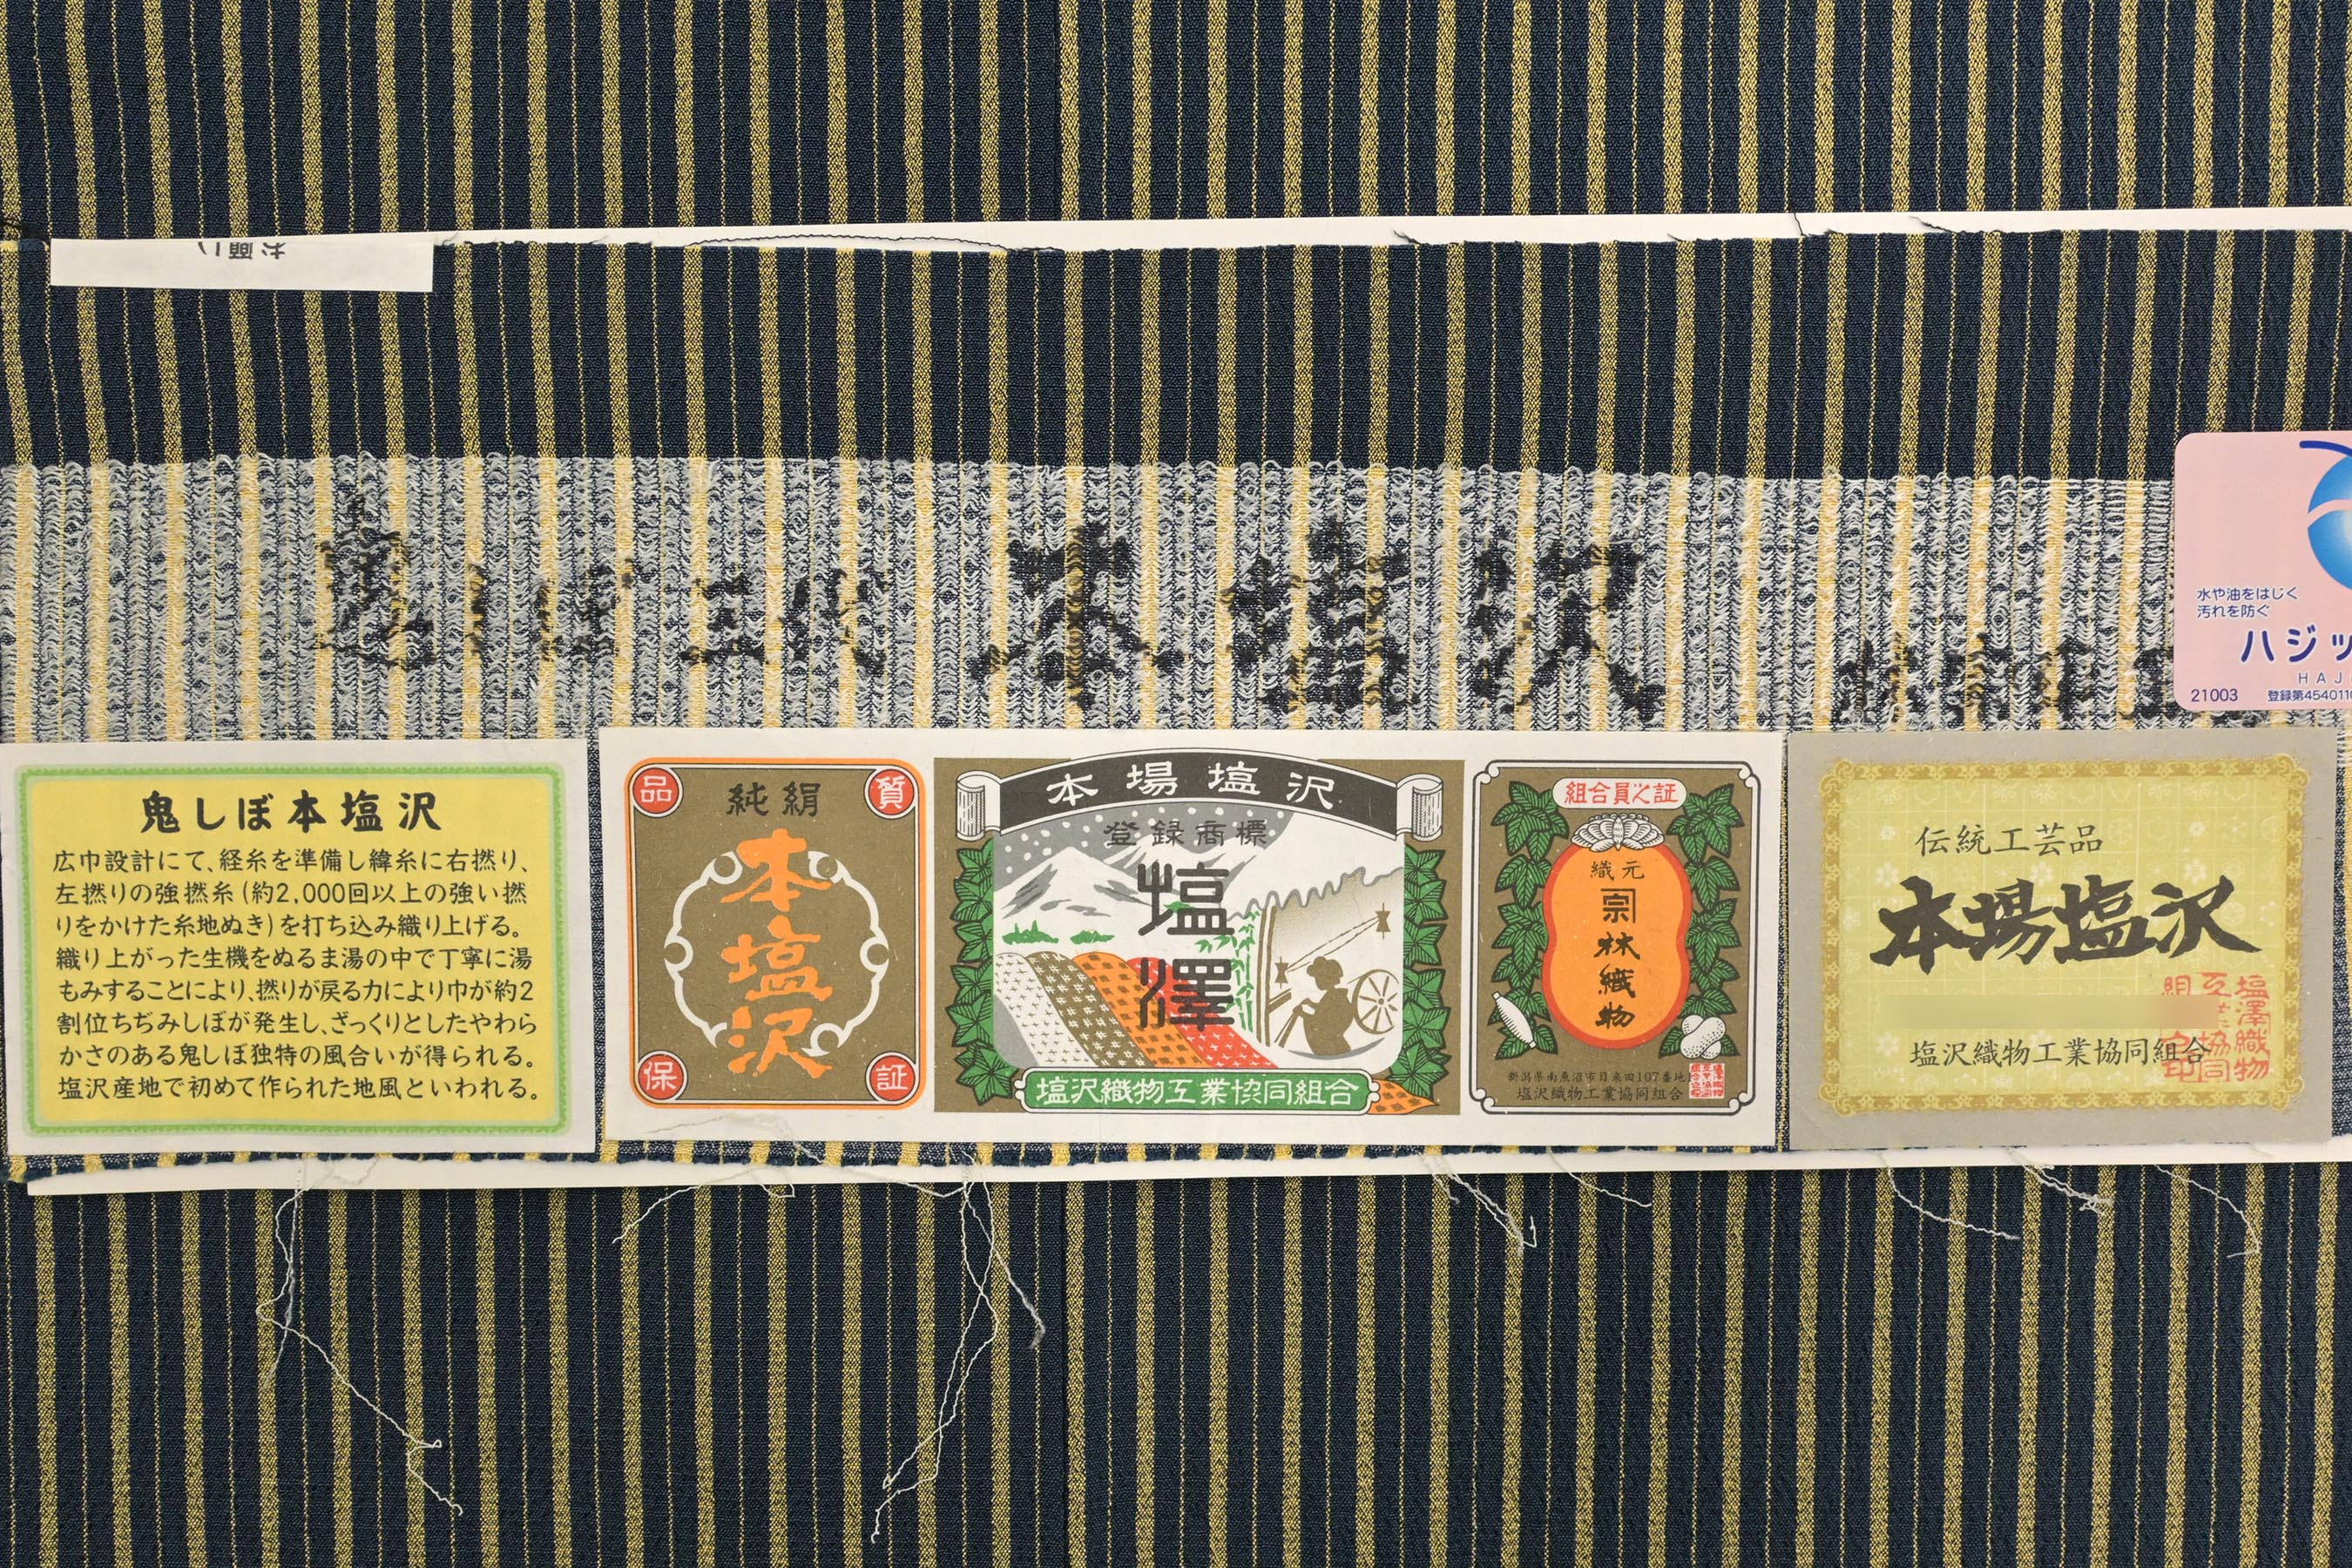 鬼しぼ 本塩沢
水や油をはじく
汚れを防ぐ
ハジッ
HAJ
21003
登録第454011
鬼しぼ本塩沢
広巾設計にて、経糸を準備し緯糸に右撚り、
左撚りの強撚糸(約2,000回以上の強い撚
りをかけた糸地ぬき)を打ち込み織り上げる。
織り上がった生機をぬるま湯の中で丁寧に湯
もみすることにより、撚りが戻る力により巾が約2
割位ちぢみしぼが発生し、ざっくりとしたやわら
かさのある鬼しぼ独特の風合いが得られる。
塩沢産地で初めて作られた地風といわれる。
品質保証
純絹
本塩沢
本場塩沢
登録商標
塩澤
塩沢織物工業協同組合
組合員之証
織元
宗
林織物
新潟県南魚沼市目来田107番地1
塩沢織物工業協同組合
伝統工芸品
本場塩沢
塩沢織物工業協同組合